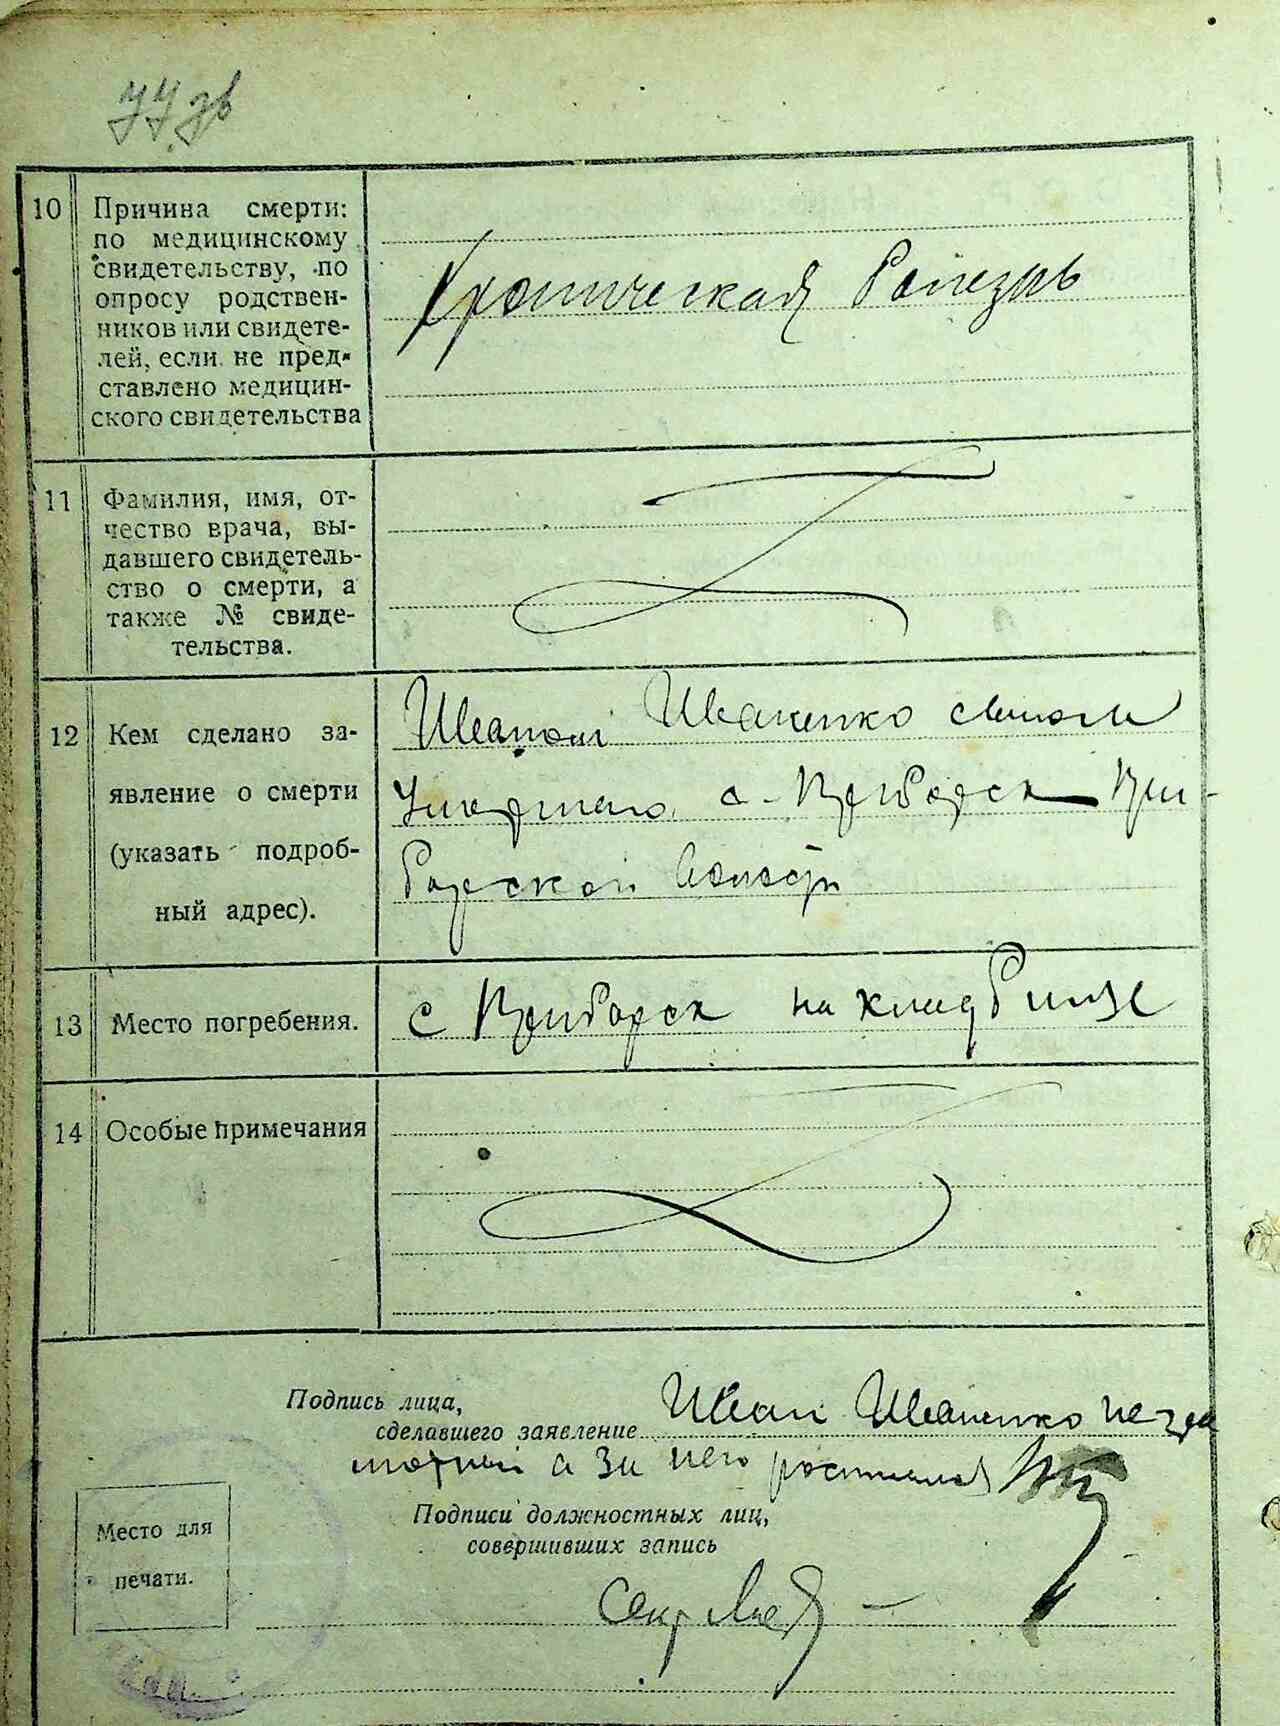 77 зв
10 Причина смерти:
по медицинскому
свидетельству, по
опросу родствен-
ников или свидете-
лей, если не пред-
ставлено медицин-
ского свидетельства
Хроническая болезнь
11 Фамилия, имя, от-
чество врача, вы-
давшего свидетель-
ство о смерти, а
также № свиде-
тельства.
12 Кем сделано за-
явление о смерти
(указать подроб-
ный адрес).
Иваном Иваненко сыном
умершего с. Приборск При
борской волости
13 Место погребения.
с Приборск на кладбище
14 Особые примечания
Подпись лица,
сделавшего заявление Иван Иваненко негра
мотный а за него
Подписи должностных лиц,
совершивших запись
Место для
печати.
Секр